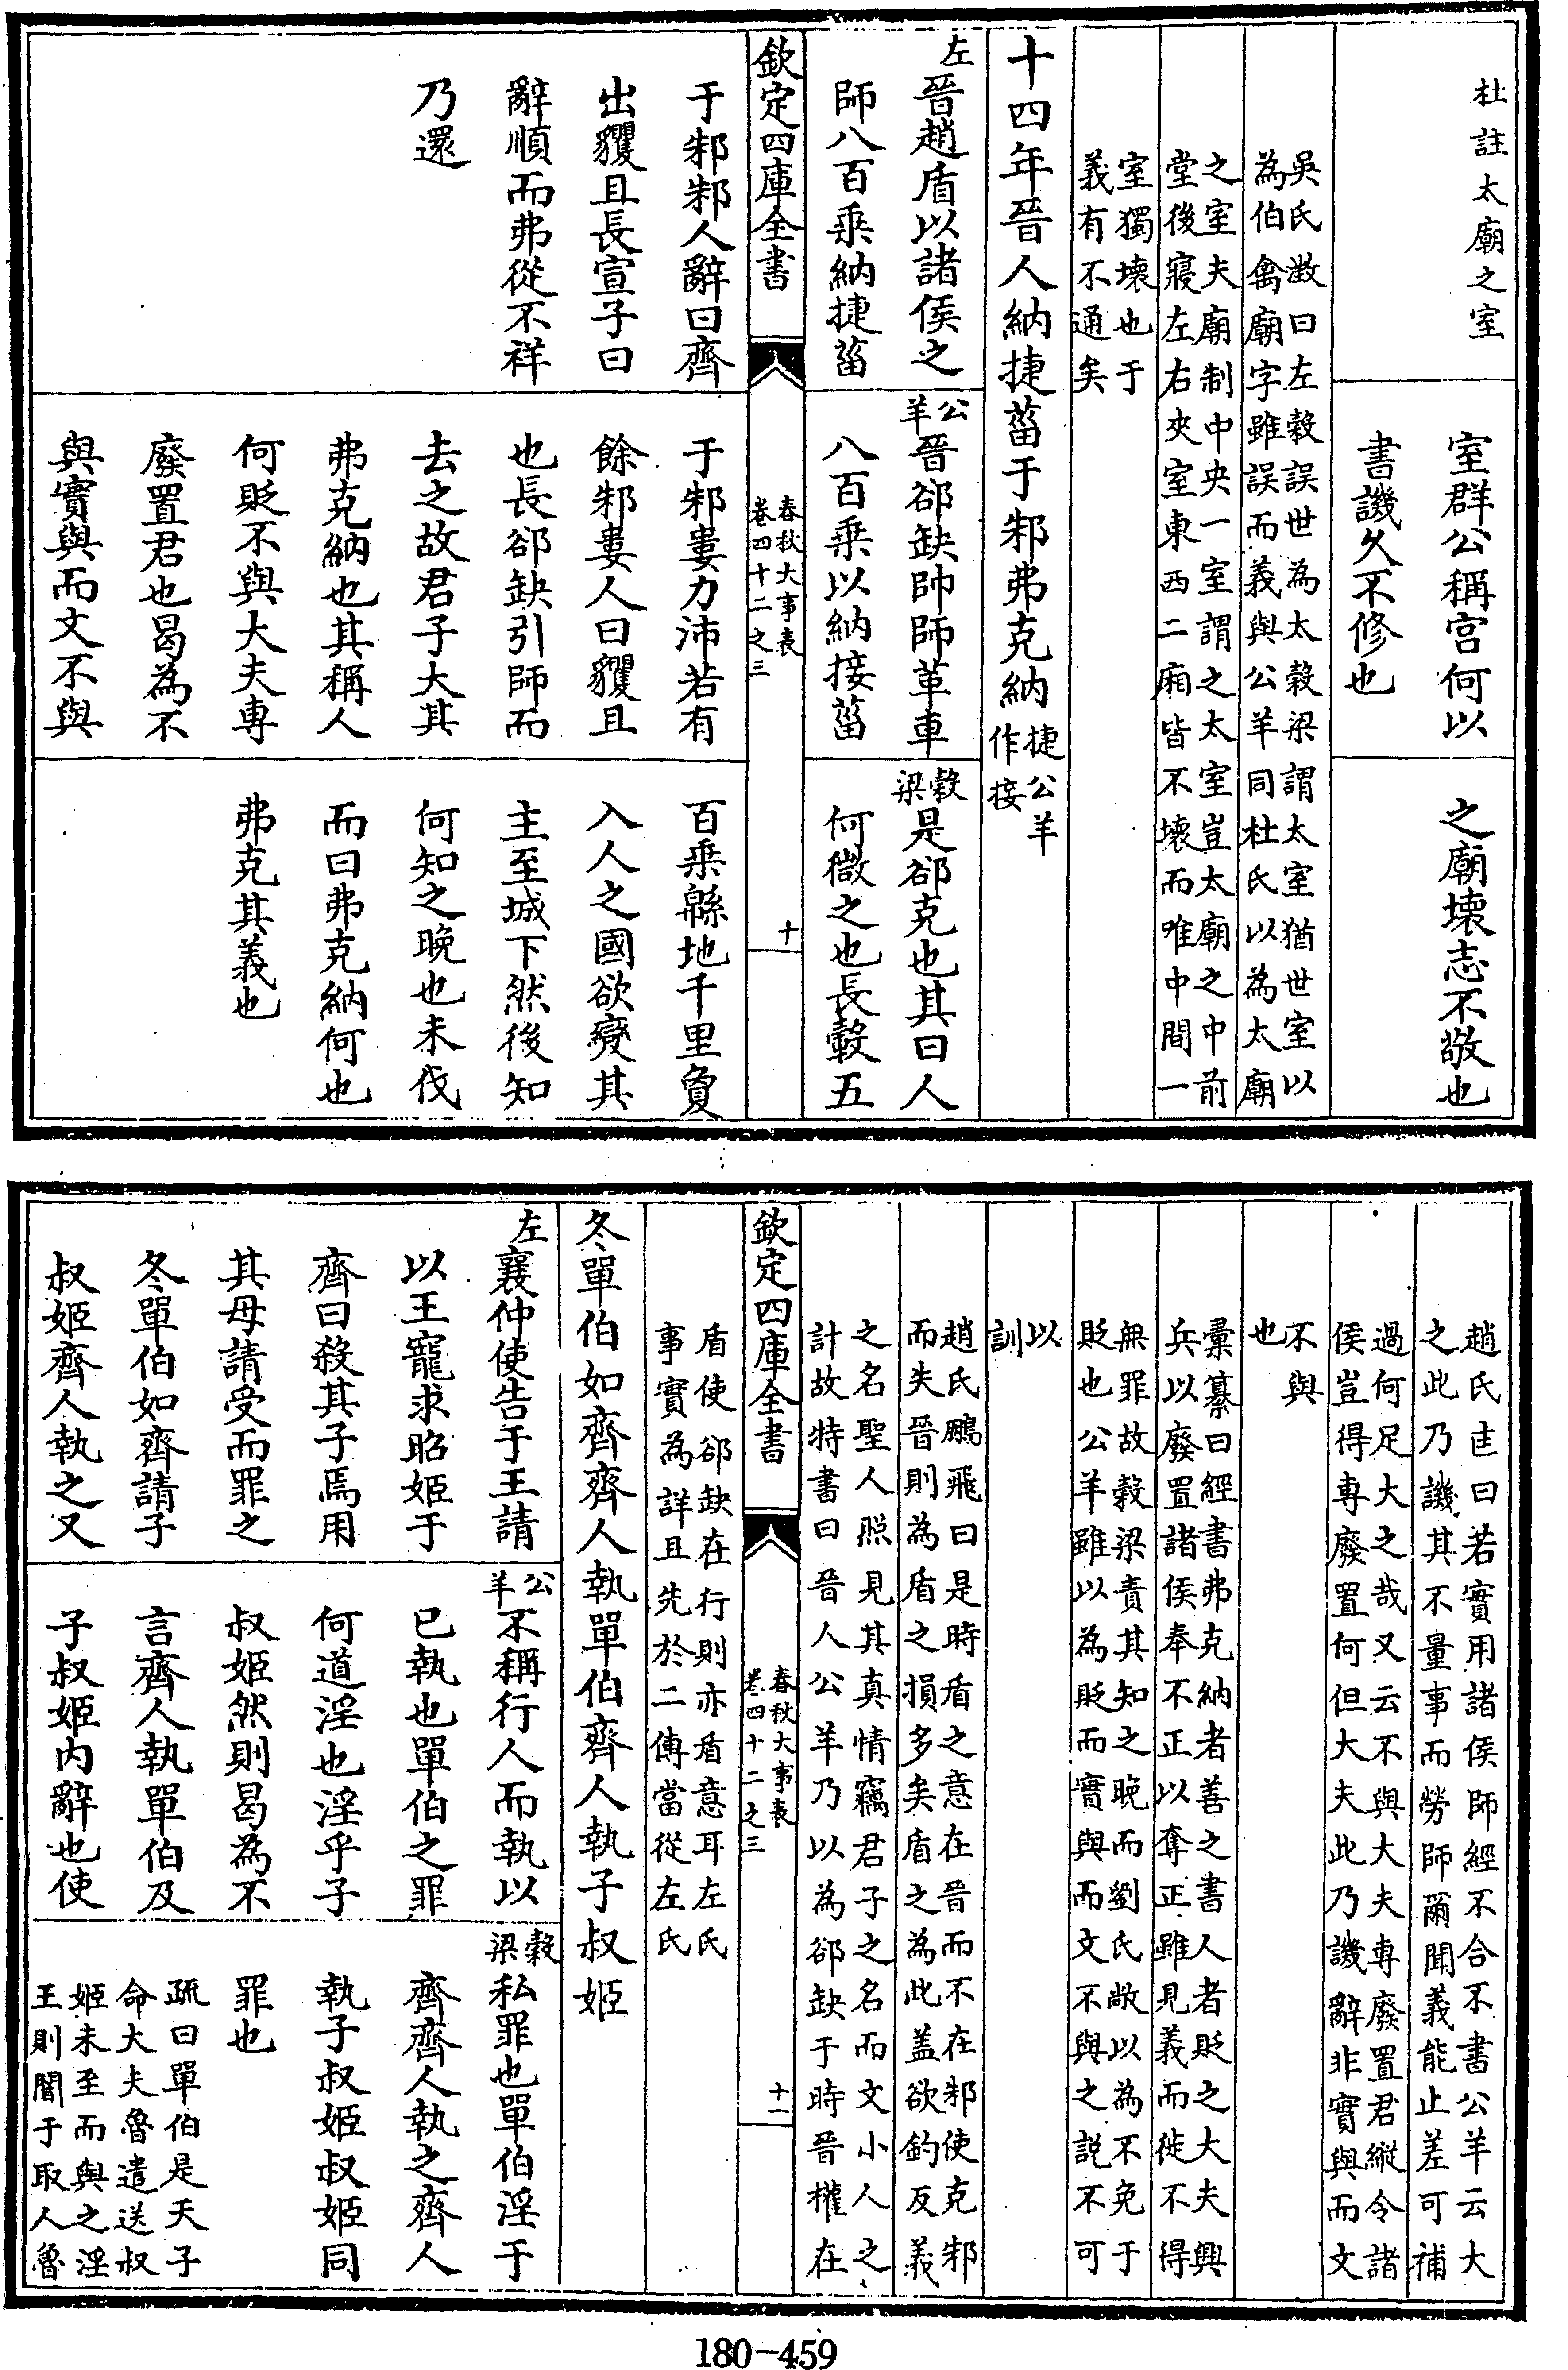 杜註太廟之室
室群公稱宫何以
書譏久不修也
之廟壊志不敬也
吳氏澂曰左穀誤世為太穀梁謂太室猶世室以
為伯禽廟字雖誤而義與公羊同杜氏以為太廟
之室夫廟制中央一室謂之太室豈太廟之中前
堂後寢左右夾室東西二廂皆不壊而唯中間一
室獨壊也于
義有不通矣
十四年晉人納捷菑于邾弗克納
捷公羊
作接
左
晉趙盾以諸侯之
師八百乘納捷菑
公羊
晉郤缺帥師革車
八百乘以納接菑
穀梁
是郤克也其曰人
何微之也長轂五
欽定四庫全書
春秋大事表
卷四十二之三
十
于邾邾人辭曰齊
出貜且長宣子曰
辭順而弗從不祥
乃還
于邾婁力沛若有
餘邾婁人曰貜且
也長郤缺引師而
去之故君子大其
弗克納也其稱人
何貶不與大夫専
廢置君也曷為不
與實與而文不與
百乘緜地千里敻
入人之國欲變其
主至城下然後知
何知之晚也未伐
而曰弗克納何也
弗克其義也
趙氏匡曰若實用諸侯師經不合不書公羊云大
之此乃譏其不量事而勞師爾聞義能止差可補
過何足大之哉又云不與大夫専廢置君縱令諸
侯豈得専廢置何但大夫此乃譏辭非實與而文
不與
也
彚纂曰經書弗克納者善之書人者貶之大夫興
兵以廢置諸侯奉不正以奪正雖見義而徙不得
無罪故穀梁責其知之晚而劉氏敞以為不免于
貶也公羊雖以為貶而實與而文不與之説不可
以
訓
趙氏鵬飛曰是時盾之意在晉而不在邾使克邾
而失晉則為盾之損多矣盾之為此盖欲釣反義
之名聖人照見其真情竊君子之名而文小人之
計故特書曰晉人公羊乃以為郤缺于時晉權在
欽定四庫全書
春秋大事表
卷四十二之三
十一
盾使郤缺在行則亦盾意耳左氏
事實為詳且先於二傳當從左氏
冬單伯如齊齊人執單伯齊人執子叔姬
左
襄仲使告于王請
以王寵求昭姬于
齊曰殺其子焉用
其母請受而罪之
冬單伯如齊請子
叔姬齊人執之又
公羊
不稱行人而執以
已執也單伯之罪
何道淫也淫乎子
叔姬然則曷為不
言齊人執單伯及
子叔姬内辭也使
穀梁
私罪也單伯淫于
齊齊人執之齊人
執子叔姬叔姬同
罪也
疏曰單伯是天子
命大夫魯遣送叔
姬未至而與之淫
王則闇于取人魯
180-459